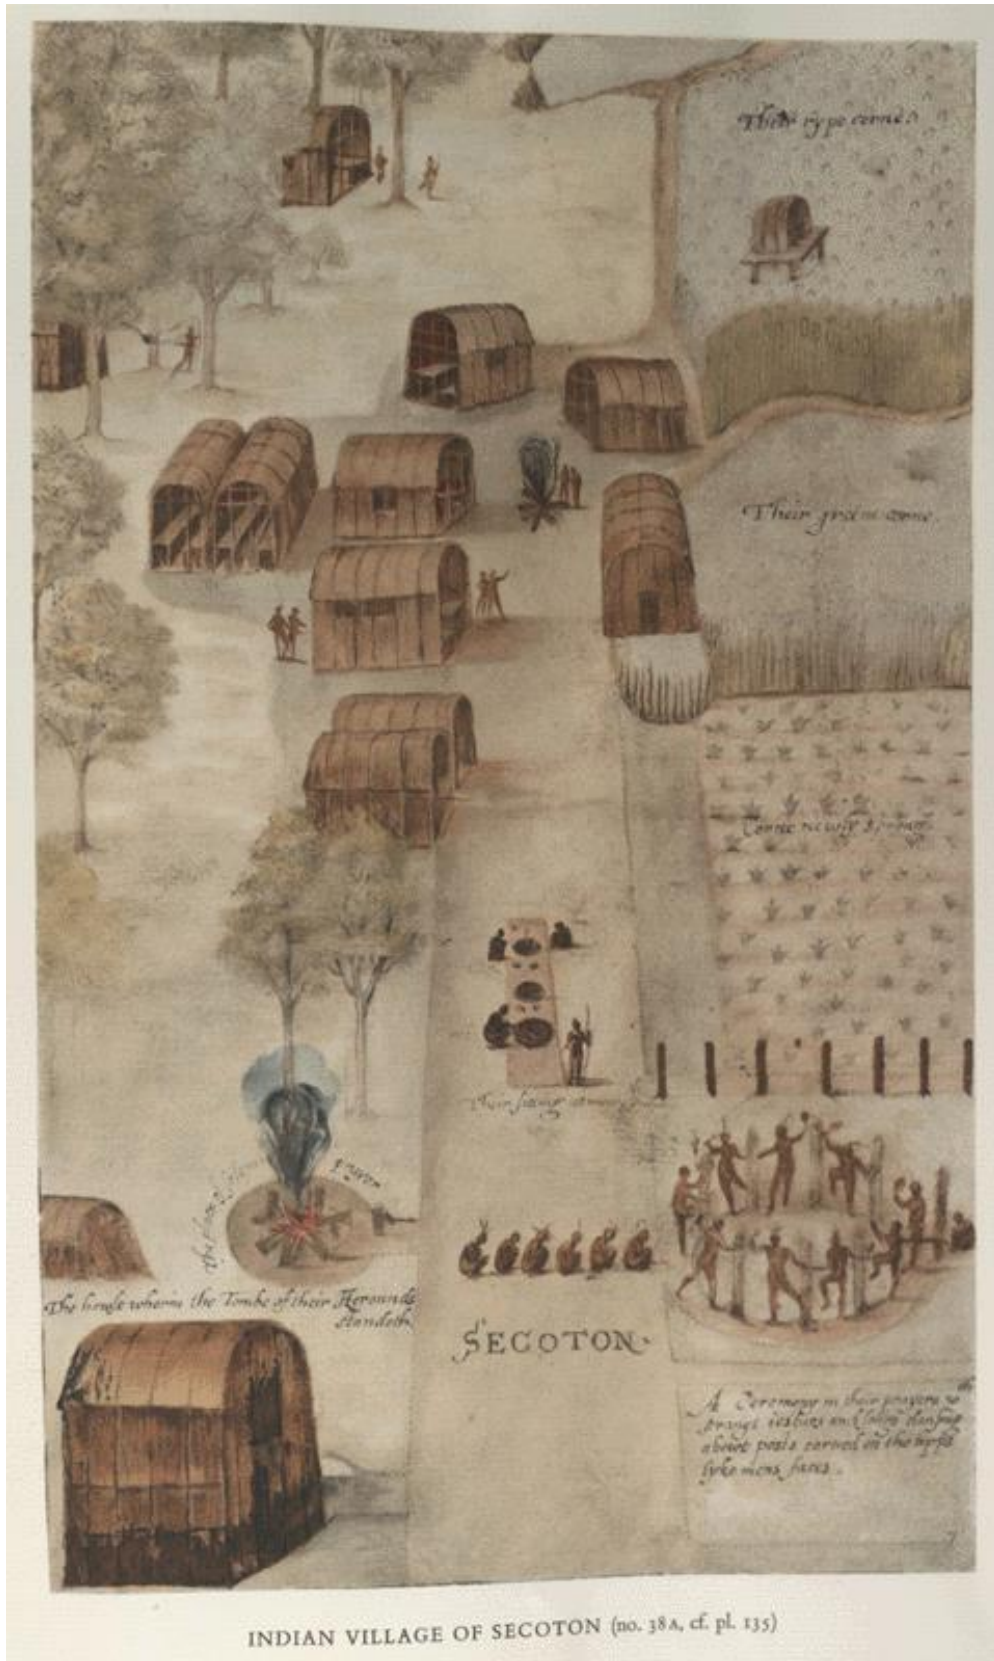 Their rype corne.
Their greene corne.
Corne newly sprong.
Their sitting at meate
The place of solem prayer
The house wherin the Tombe of their Herounds
standeth.
SECOTON.
A Ceremony in their prayers wth
strange iesturs and songs dansing
abowt posts carued on the topps
lyke mens faces.
7
INDIAN VILLAGE OF SECOTON (no. 38A, cf. pl. 135)